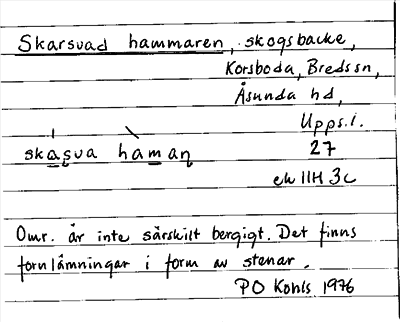 Skarsvad hammaren, skogsbacke,
Korsboda, Breds sn,
Åsunda hd,
Upps.l.
skasva haman 27
ek 11H 3c
Omr. är inte särskilt bergigt. Det finns
fornlämningar i form av stenar.
PO Kohls 1976